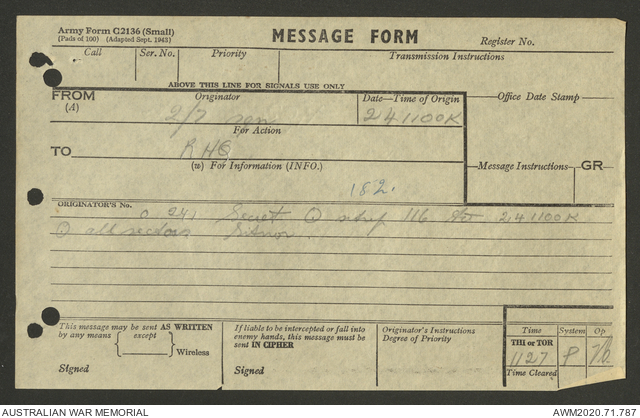 Army Form C2136 (Small)
(Pads of 100) (Adapted Sept. 1943)
MESSAGE FORM
Register No.
Call Ser. No. Priority Transmission Instructions
ABOVE THIS LINE FOR SIGNALS USE ONLY
FROM
(A)
Originator
2/7
Date—Time of Origin
241100K
Office Date Stamp
For Action
TO
RHQ
(w) For Information (INFO.)
Message Instructions GR
182.
ORIGINATOR'S No.
O 241 Secret O sitrep 116 241100K
O all sectors
This message may be sent AS WRITTEN
by any means except
Wireless
Signed
If liable to be intercepted or fall into
enemy hands, this message must be
sent IN CIPHER
Signed
Originator's Instructions
Degree of Priority
Time System Op.
THI or TOR
1127 P
Time Cleared
AUSTRALIAN WAR MEMORIAL
AWM2020.71.787